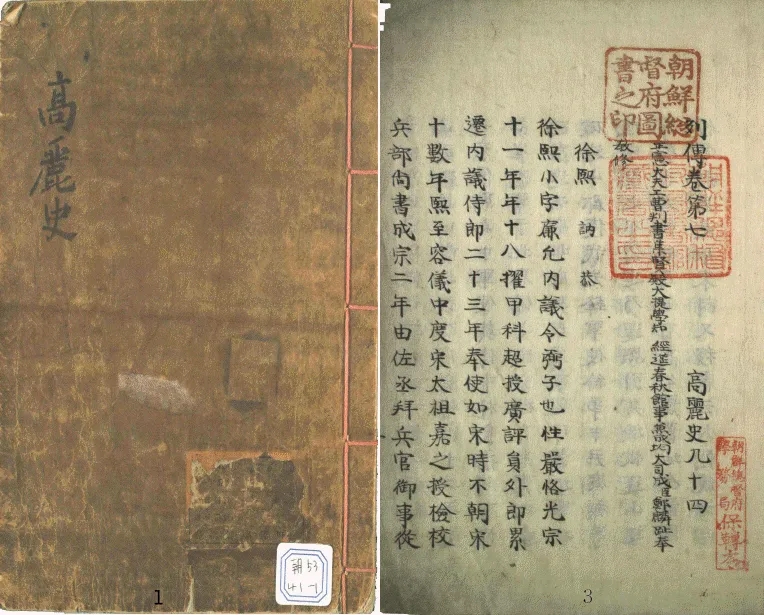 高麗史
朝53
41-1
1
朝鮮総
督府圖
書之印
列傳卷第七 高麗史九十四
正憲大夫工曹判書集賢殿大提學知 經筵春秋館事兼成均大司成臣鄭麟趾奉
教修
徐熙 訥 恭
徐熙小字廉允内議令弼子也性嚴恪光宗
十一年年十八擢甲科超授廣評員外郎累
遷内議侍郎二十三年奉使如宋時不朝宋
十數年熙至容儀中度宋太祖嘉之授檢校
兵部尚書成宗二年由佐丞拜兵官御事從
朝鮮總督府
學務局
3